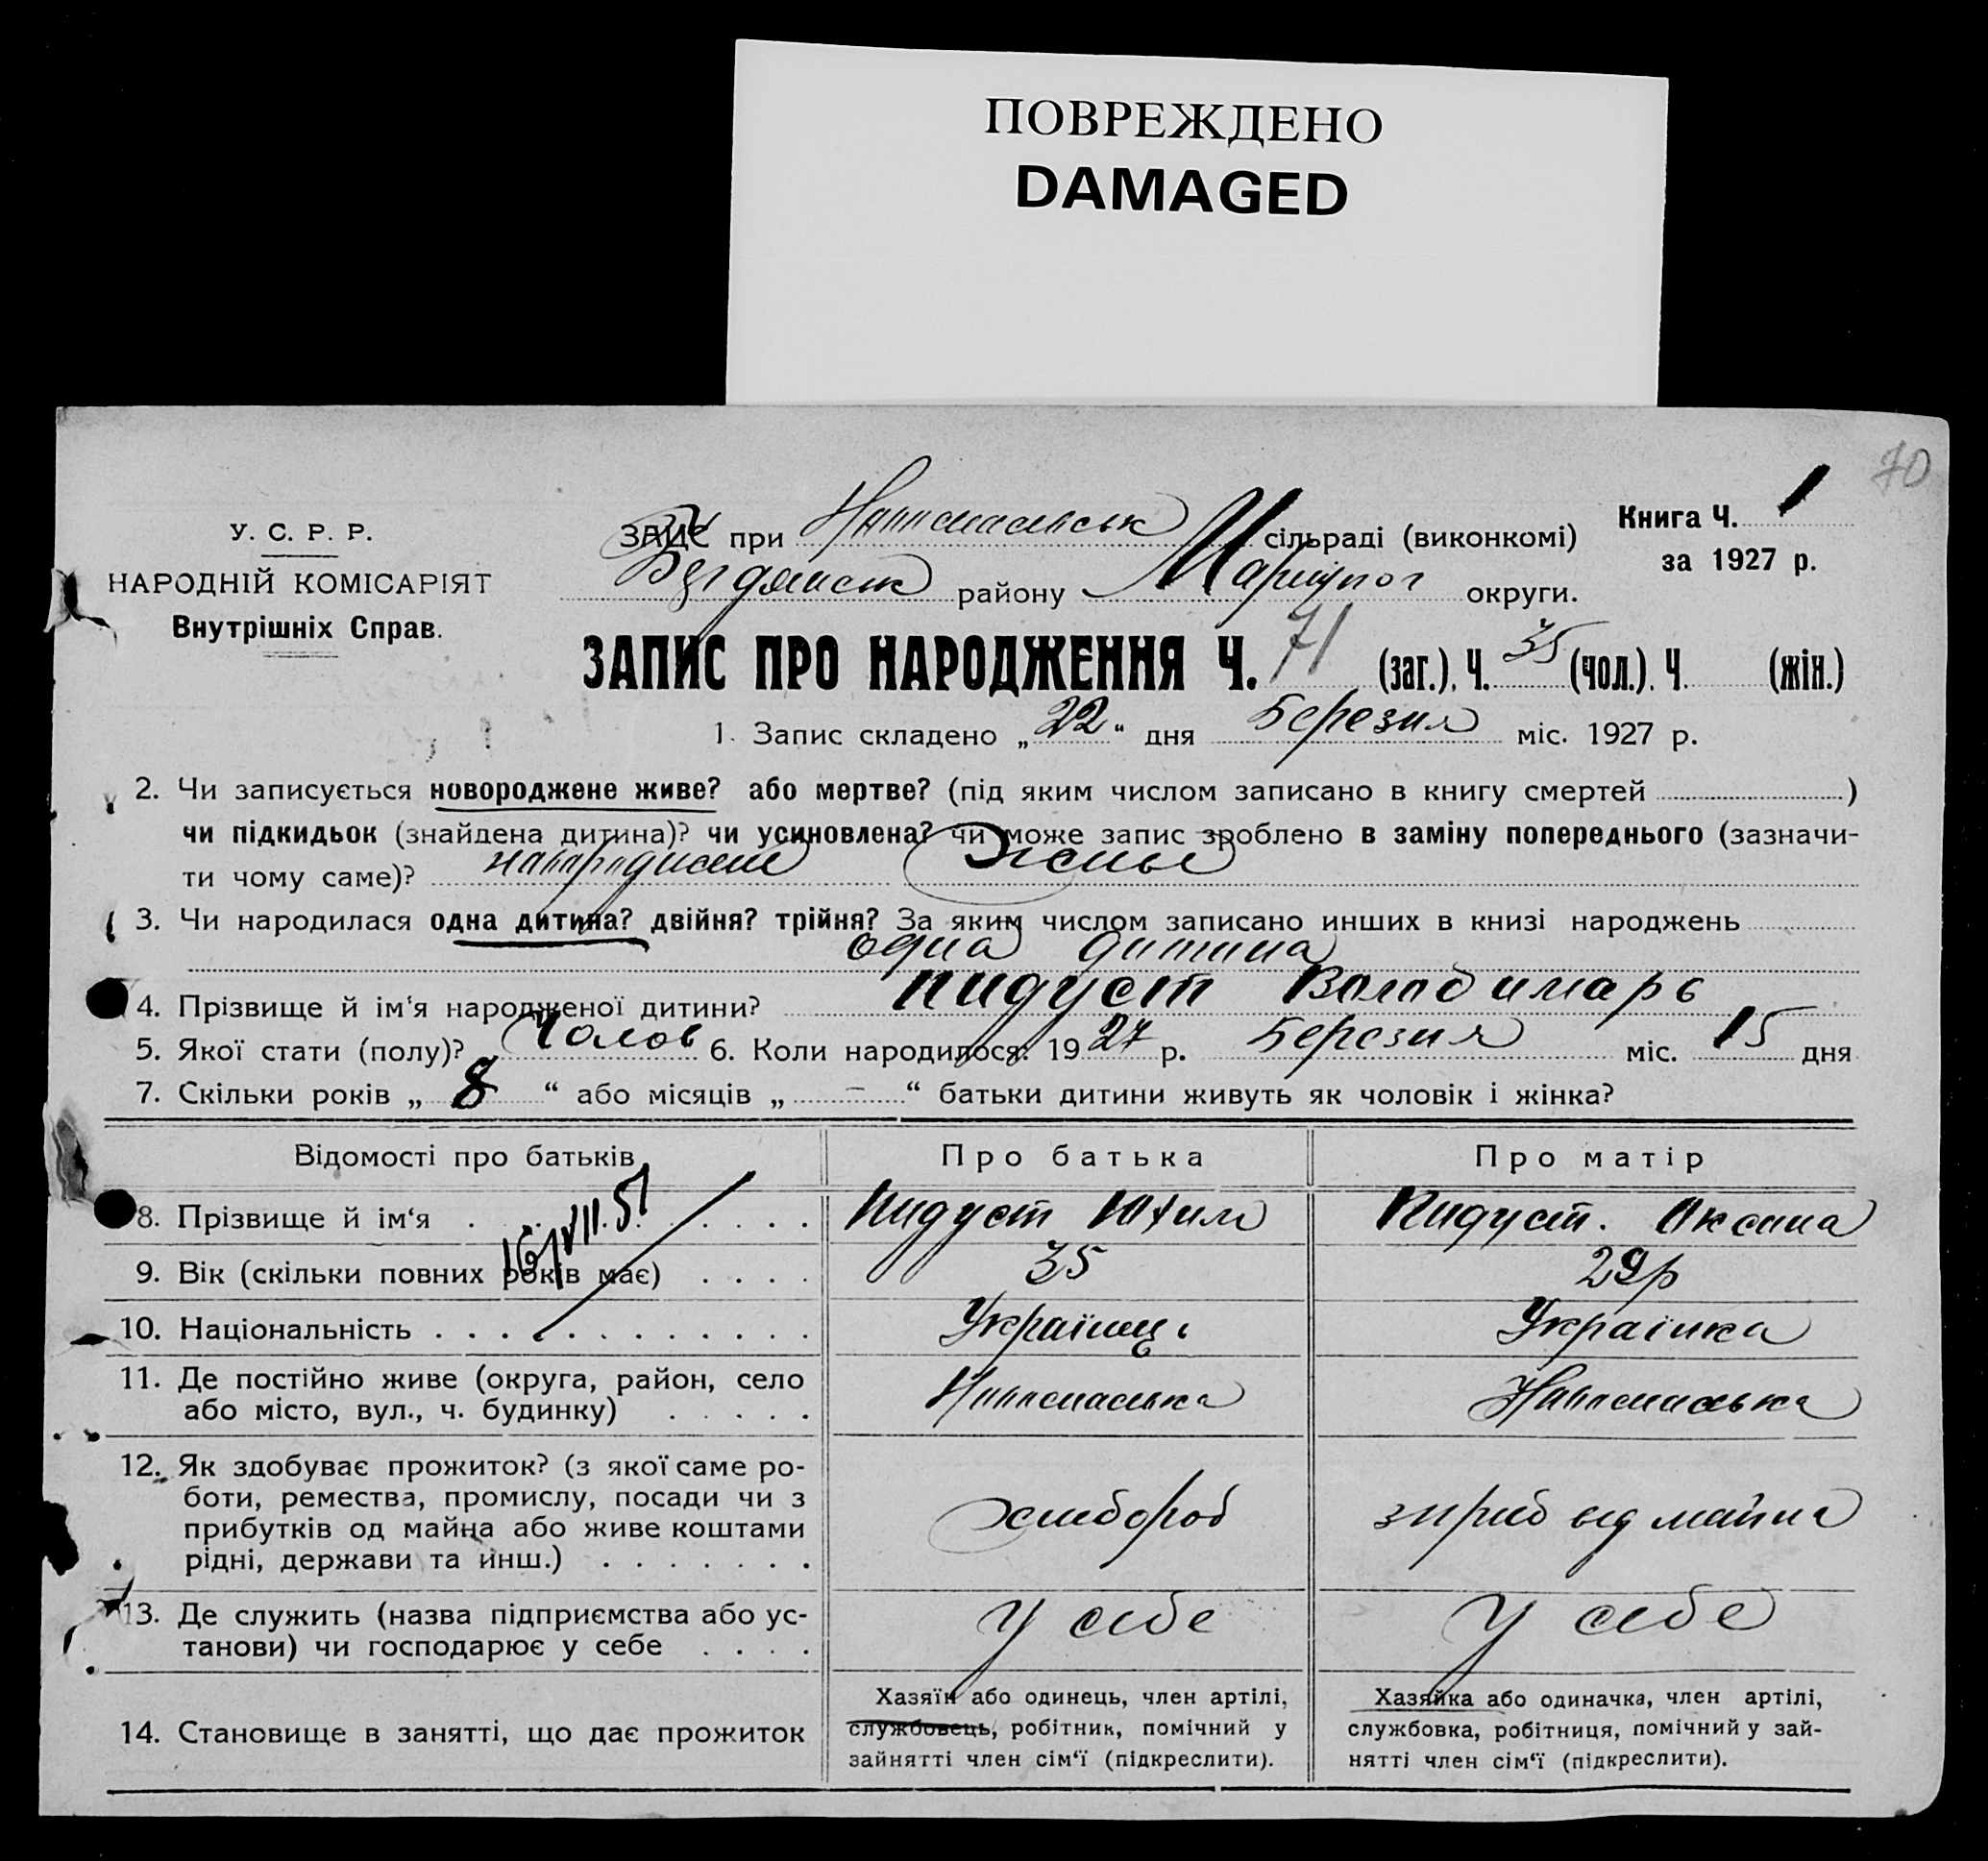 ПОВРЕЖДЕНО
DAMAGED
70
У. С. Р. Р.
НАРОДНІЙ КОМІСАРІЯТ
Внутрішніх Справ.
ЗАЦС при сільраді (виконкомі)
Книга Ч. 1
за 1927 р.
Бердянськ району Маріупол округи.
ЗАПИС ПРО НАРОДЖЕННЯ Ч. 71 (заг.), Ч. 35 (чол.), Ч. (жін.)
1. Запис складено „22“ дня Березня міс. 1927 р.
2. Чи записується новороджене живе? або мертве? (під яким числом записано в книгу смертей )
чи підкидьок (знайдена дитина)? чи усиновлена? чи може запис зроблено в заміну попереднього (зазначи-
ти чому саме)?
3. Чи народилася одна дитина? двійня? трійня? За яким числом записано инших в книзі народжень
одна дитина
4. Прізвище й ім‘я народженої дитини? Пидуст Володимарь
5. Якої стати (полу)? Чолов 6. Коли народилося? 1927 р. Березня міс. 15 дня
7. Скільки років „ 8 “ або місяців „ – “ батьки дитини живуть як чоловік і жінка?
Відомості про батьків Про батька Про матір
16/VII.51
8. Прізвище й ім‘я Пидуст Юхим Пидуст. Оксана
9. Вік (скільки повних років має) 35 29р
10. Національність Українець Українка
11. Де постійно живе (округа, район, село
або місто, вул., ч. будинку)
12. Як здобуває прожиток? (з якої саме ро-
боти, ремества, промислу, посади чи з
прибутків од майна або живе коштами
рідні, держави та инш.)
хлибороб з приб від майна
13. Де служить (назва підприємства або ус-
танови) чи господарює у себе
у себе у себе
14. Становище в занятті, що дає прожиток
Хазяїн або одинець, член артілі,
службовець, робітник, помічний у
зайнятті член сім‘ї (підкреслити).
Хазяйка або одиначка, член артілі,
службовка, робітниця, помічний у зай-
нятті член сім‘ї (підкреслити).